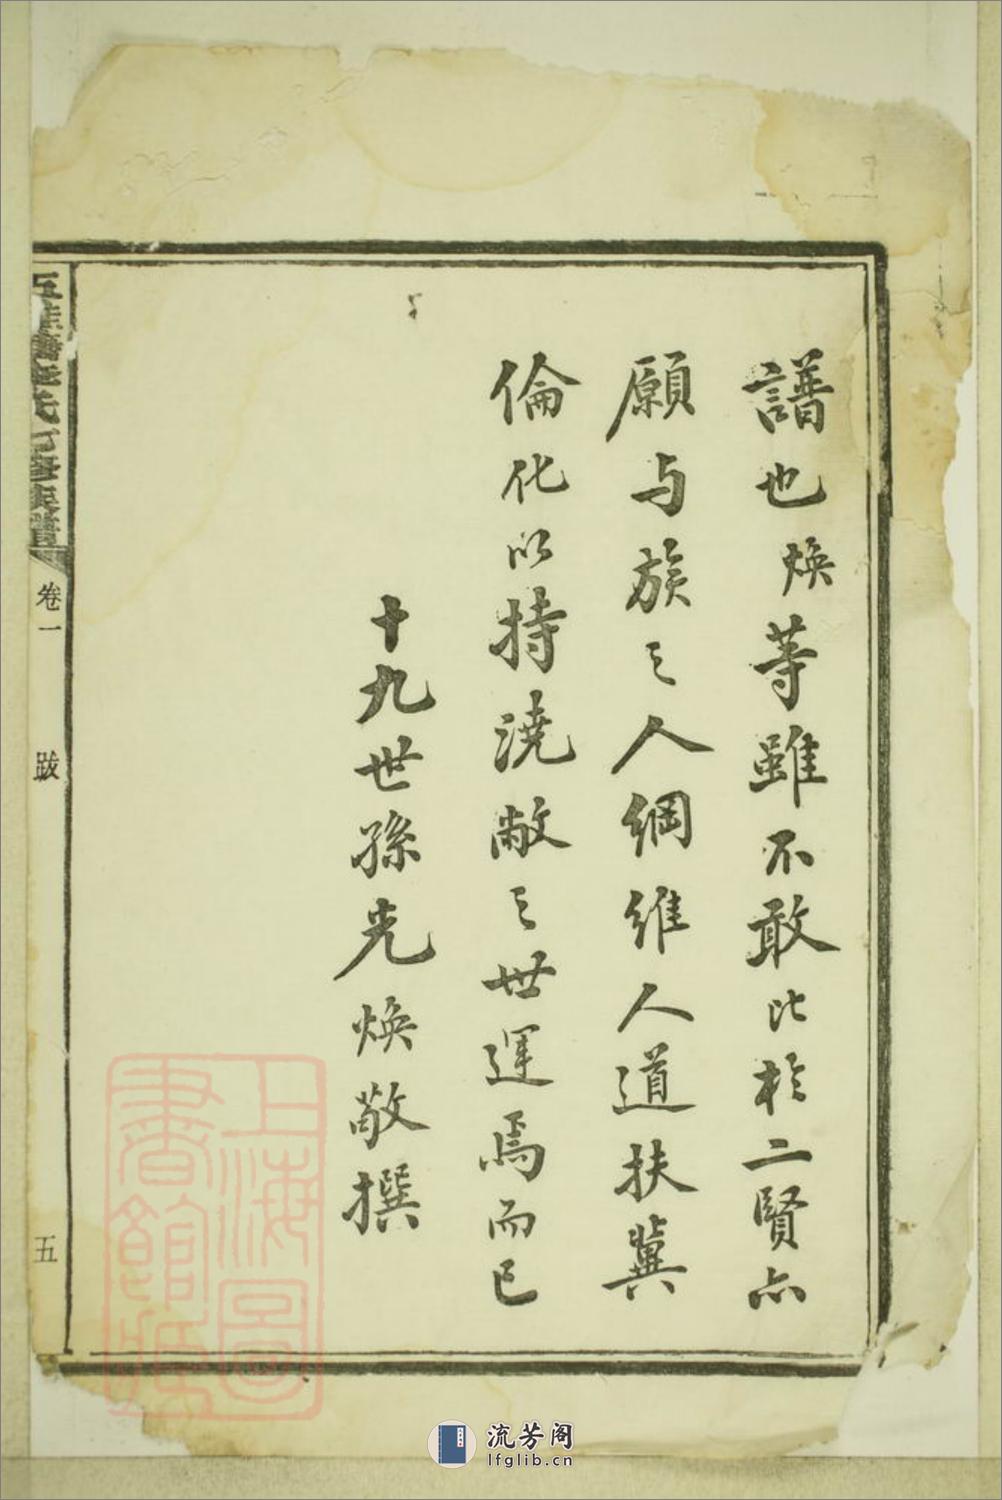 譜也煥等雖不敢比於二賢亦
願与族之人綱維人道扶冀
倫化以持澆敝之世運焉而已
十九世孫光煥敬撰
氏
族譜
卷一
跋
五
上海圖
書館藏
流芳阁
lfglib.cn